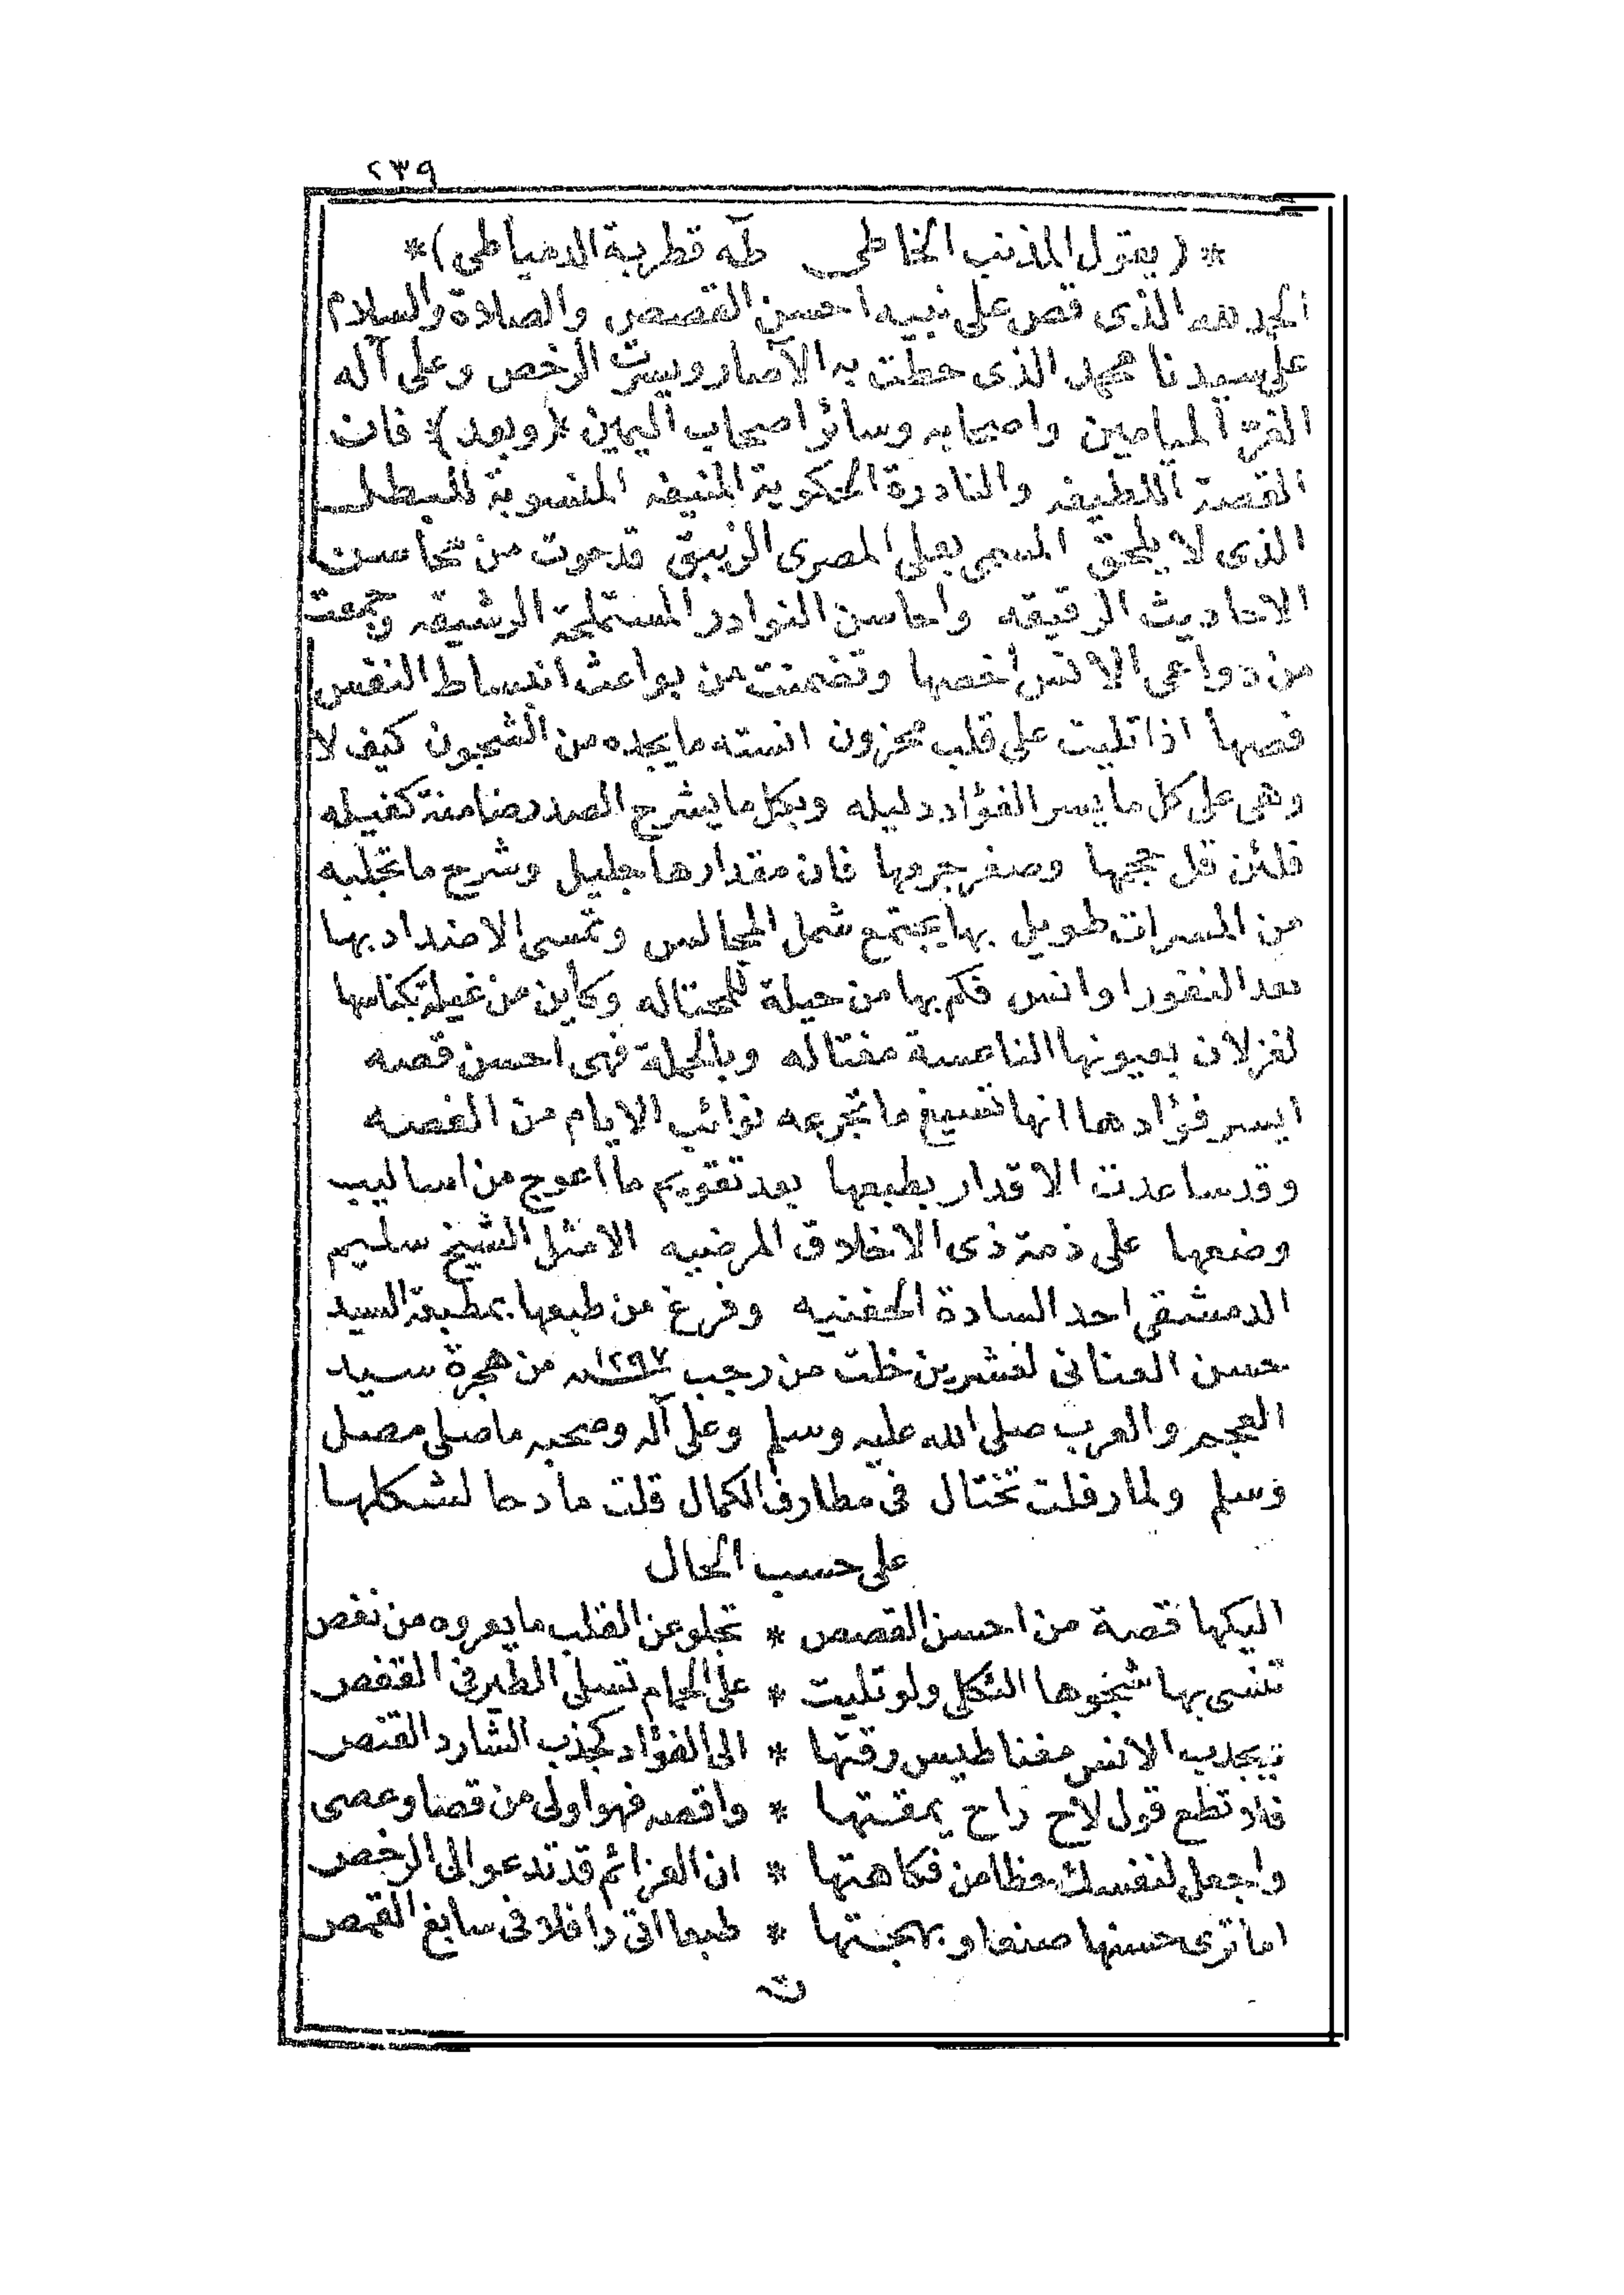 ٢٣٩
* (يقول المذنب الخاطى طه قطرية الدمياطى) *
الحمد لله الذى قص على نبيه احسن القصص والصلاة والسلام
على سيدنا محمد الذى حطت به الآصار ويسرت الرخص وعلى آله
الغر الميامين واصحابه وسائر اصحاب اليمين *(وبعد)* فان
القصة اللطيفه والنادرة المحكوية المنيفه المنسوبة للبطل
الذى لا يلحق المسمى بعلى المصرى الزيبق قد حوت من محاسن
الاحاديث الرقيقه واحاسن النوادر المستملحة الرشيقه وجمعت
من دواعى الانس اخصها وتضمنت من بواعث انبساط النفس
فصها اذا تليت على قلب محزون انسته ما يجده من الشجون كيف لا
وهى على كل ما يسر الفؤاد دليله وبكل ما يشرح الصدر ضامنة كفيله
فلئن قل حجمها وصغر جرمها فان مقدارها جليل وشرح ما تجلبه
من المسرات طويل بها يجتمع شمل المجالس وتمسى الاضداد بها
بعد النفور اوانس فكم بها من حيلة لمحتاله وكاين من غيلة بكناسها
لغزلان بعيونها الناعسة مغتاله وبالجملة فهى احسن قصه
ايسر فؤادها انها تسيغ ما تجرعه نوائب الايام من الغصه
وقد ساعدت الاقدار بطبعها بعد تقويم ما اعوج من اساليب
وضعها على ذمة ذى الاخلاق المرضيه الامثل الشيخ سليم
الدمشقى احد السادة الحفنيه وفرغ من طبعها بمطبعة السيد
حسن العنانى لعشرين خلت من رجب سنة ١٢٩٧ من هجرة سيد
العجم والعرب صلى الله عليه وسلم وعلى آله وصحبه ما صلى مصل
وسلم ولما رفلت تختال فى مطارف الكمال قلت مادحا لشكلها
على حسب الحال
اليكها قصة من احسن القصص * تجلو عن القلب ما يعروه من نغص
تنسى بها شجوها الثكلى ولو تليت * على الحمام تسلى الطير فى القفص
يجذب الانس مغناطيس رقتها * الى الفؤاد كجذب الشارد القنص
فلا تطع قول لاح راح يمقتها * واقصه فهو اولى من قصا وعصى
واجعل لنفسك حظا من فكاهتها * ان العزائم قد تدعو الى الرخص
اما ترى حسنها صنعا وبهجتها * طبعا اتى رافلا فى سابغ القمص
ت